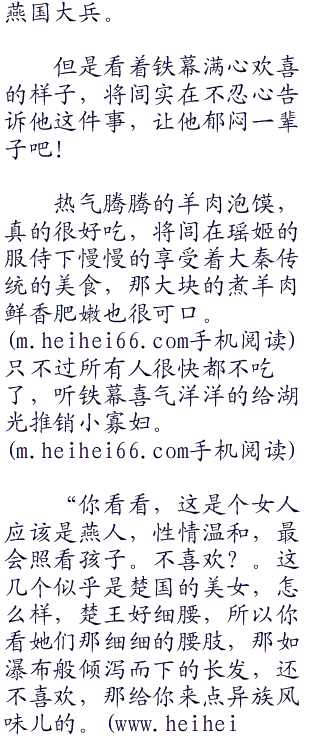 燕国大兵。
但是看着铁幕满心欢喜
的样子，将闾实在不忍心告
诉他这件事，让他郁闷一辈
子吧！
热气腾腾的羊肉泡馍，
真的很好吃，将闾在瑶姬的
服侍下慢慢的享受着大秦传
统的美食，那大块的煮羊肉
鲜香肥嫩也很可口。
(m.heihei66.com手机阅读)
只不过所有人很快都不吃
了，听铁幕喜气洋洋的给湖
光推销小寡妇。
(m.heihei66.com手机阅读)
“你看看，这是个女人
应该是燕人，性情温和，最
会照看孩子。不喜欢？。这
几个似乎是楚国的美女，怎
么样，楚王好细腰，所以你
看她们那细细的腰肢，那如
瀑布般倾泻而下的长发，还
不喜欢，那给你来点异族风
味儿的。(www.heihei